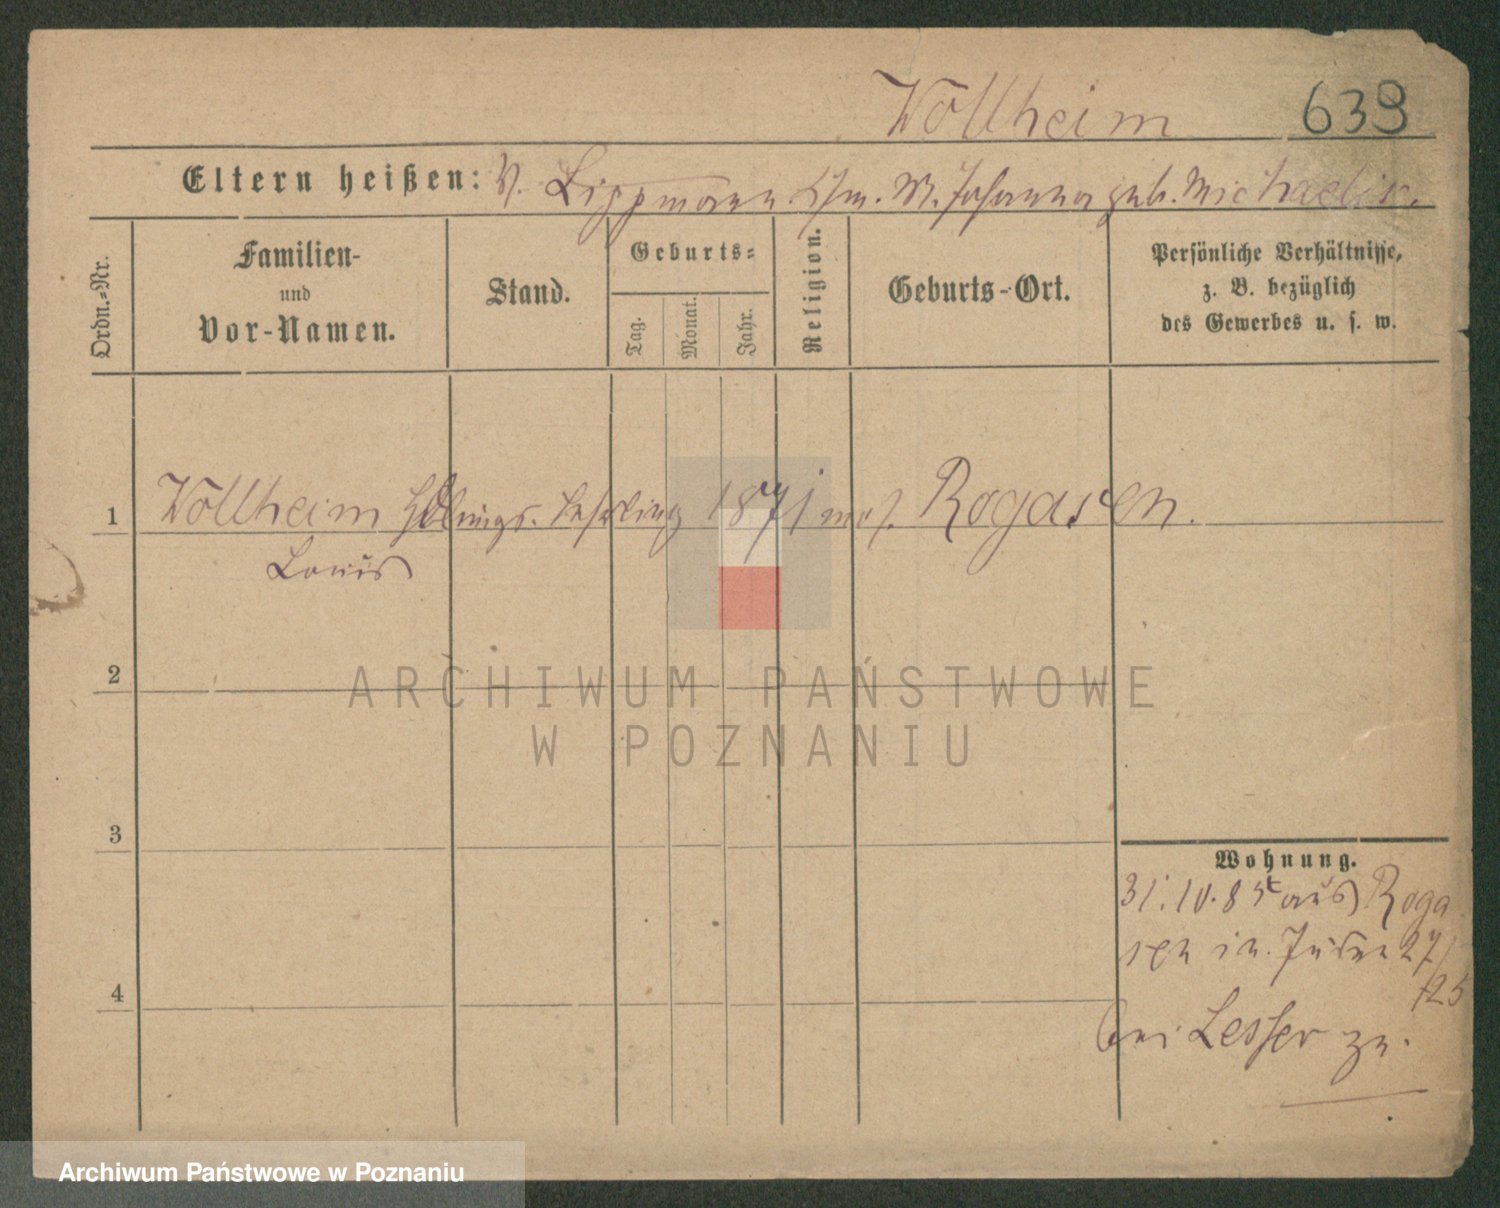 Wollheim 639
Eltern heißen: V. Lippmann Kfm. M. Johanna geb. Michaelis.
Ordn.-Nr.
Familien-
und
Vor-Namen.
Stand.
Geburts-
Tag.
Monat.
Jahr.
Religion.
Geburts-Ort.
Persönliche Verhältnisse,
z. B. bezüglich
des Gewerbes u. s. w.
1 Wollheim Hdlungs. Lehrling 1871 mos. Rogasen.
Louis
2
ARCHIWUM PAŃSTWOWE
W POZNANIU
3
Wohnung.
31.10.85 aus Roga
sen in. Juden 27/
4
bei Lesser zu.
Archiwum Państwowe w Poznaniu